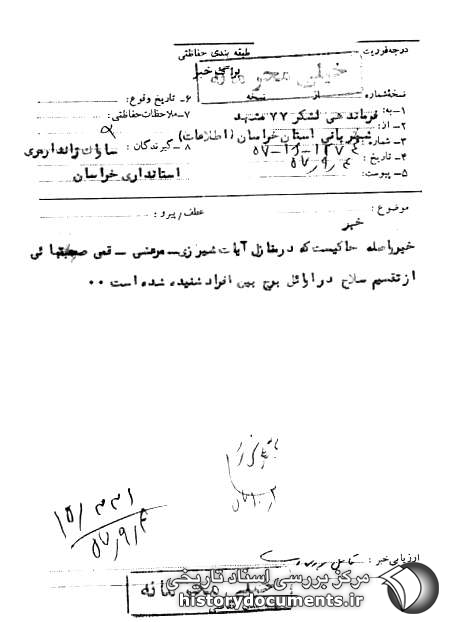 درجه فوریت
طبقه بندی حفاظتی
خیلی محرمانه
برگ خبر
نسخه شماره از نسخه
۱ـ به: فرماندهی لشکر ۷۷ مشهد
۲ـ از: شهربانی استان خراسان (اطلاعات)
۳ـ شماره:
۴ـ تاریخ: ۵۷/۹/۴
۵ـ پیوست:
۶ـ تاریخ وقوع:
۷ـ ملاحظات حفاظتی:
۸ـ گیرندگان: ساواک ژاندارمری
استانداری خراسان
موضوع: عطف/پیرو:
خبر
خبر واصله حاکیست که در منازل آیات شیرازی ـ مرعشی ـ قمی صحبتهائی
از تقسیم سلاح در اوائل برج بین افراد شنیده شده است ۰۰
۵۷/۹/۴
ارزیابی خبر:
خیلی محرمانه
مرکز بررسی اسناد تاریخی
historydocuments.ir